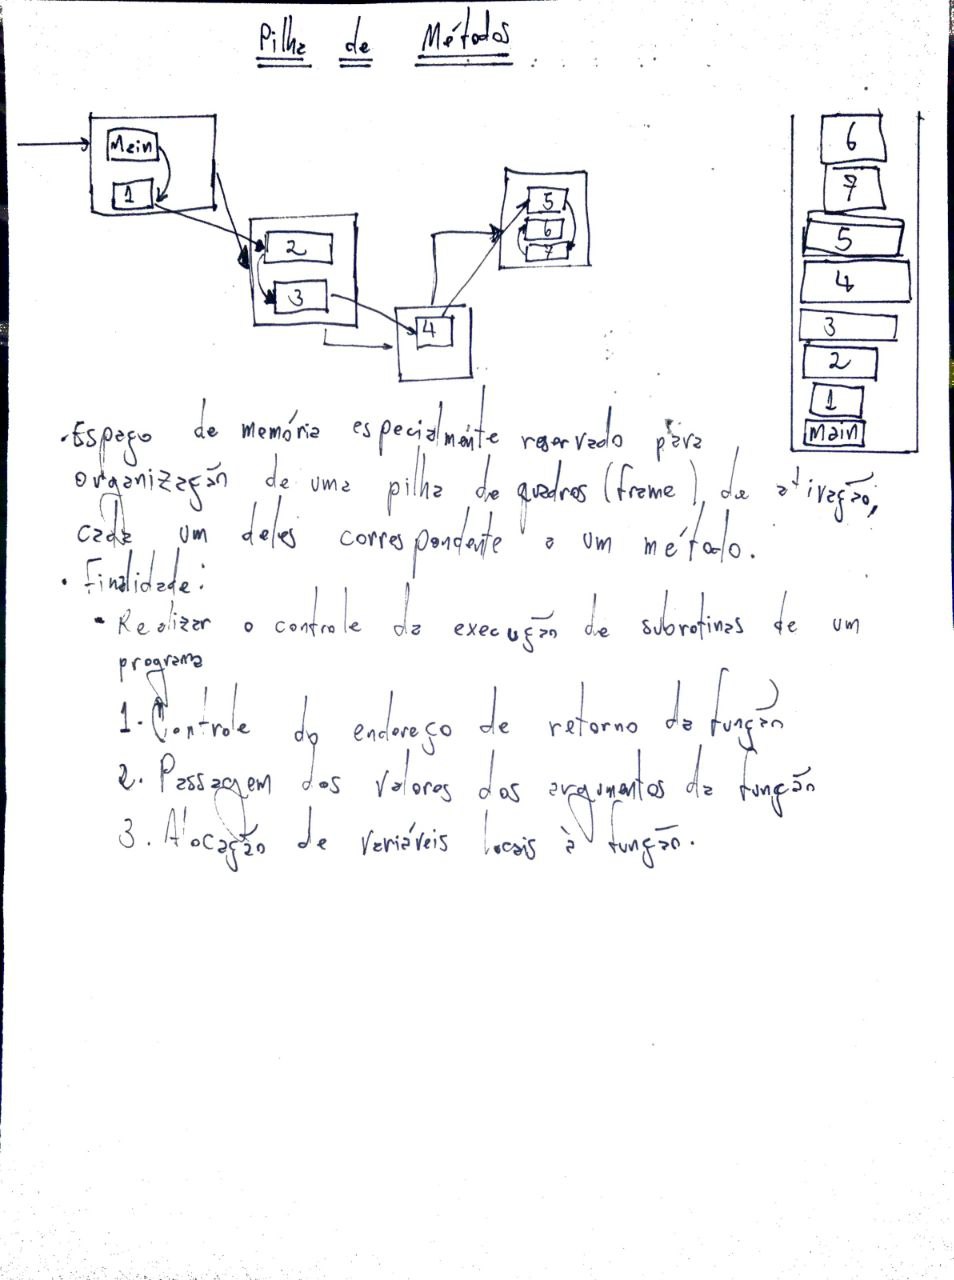 Pilha de Métodos
Main
1
2
3
4
5
6
7
6
7
5
4
3
2
1
main
• Espaço de memória especialmente reservado para
organização de uma pilha de quadros (frame), de ativação,
cada um deles correspondente a um método.
• Finalidade:
• Realizar o controle da execução de subrotinas de um
programa
1. Controle do endereço de retorno da função
2. Passagem dos valores dos argumentos da função
3. Alocação de variáveis locais à função.